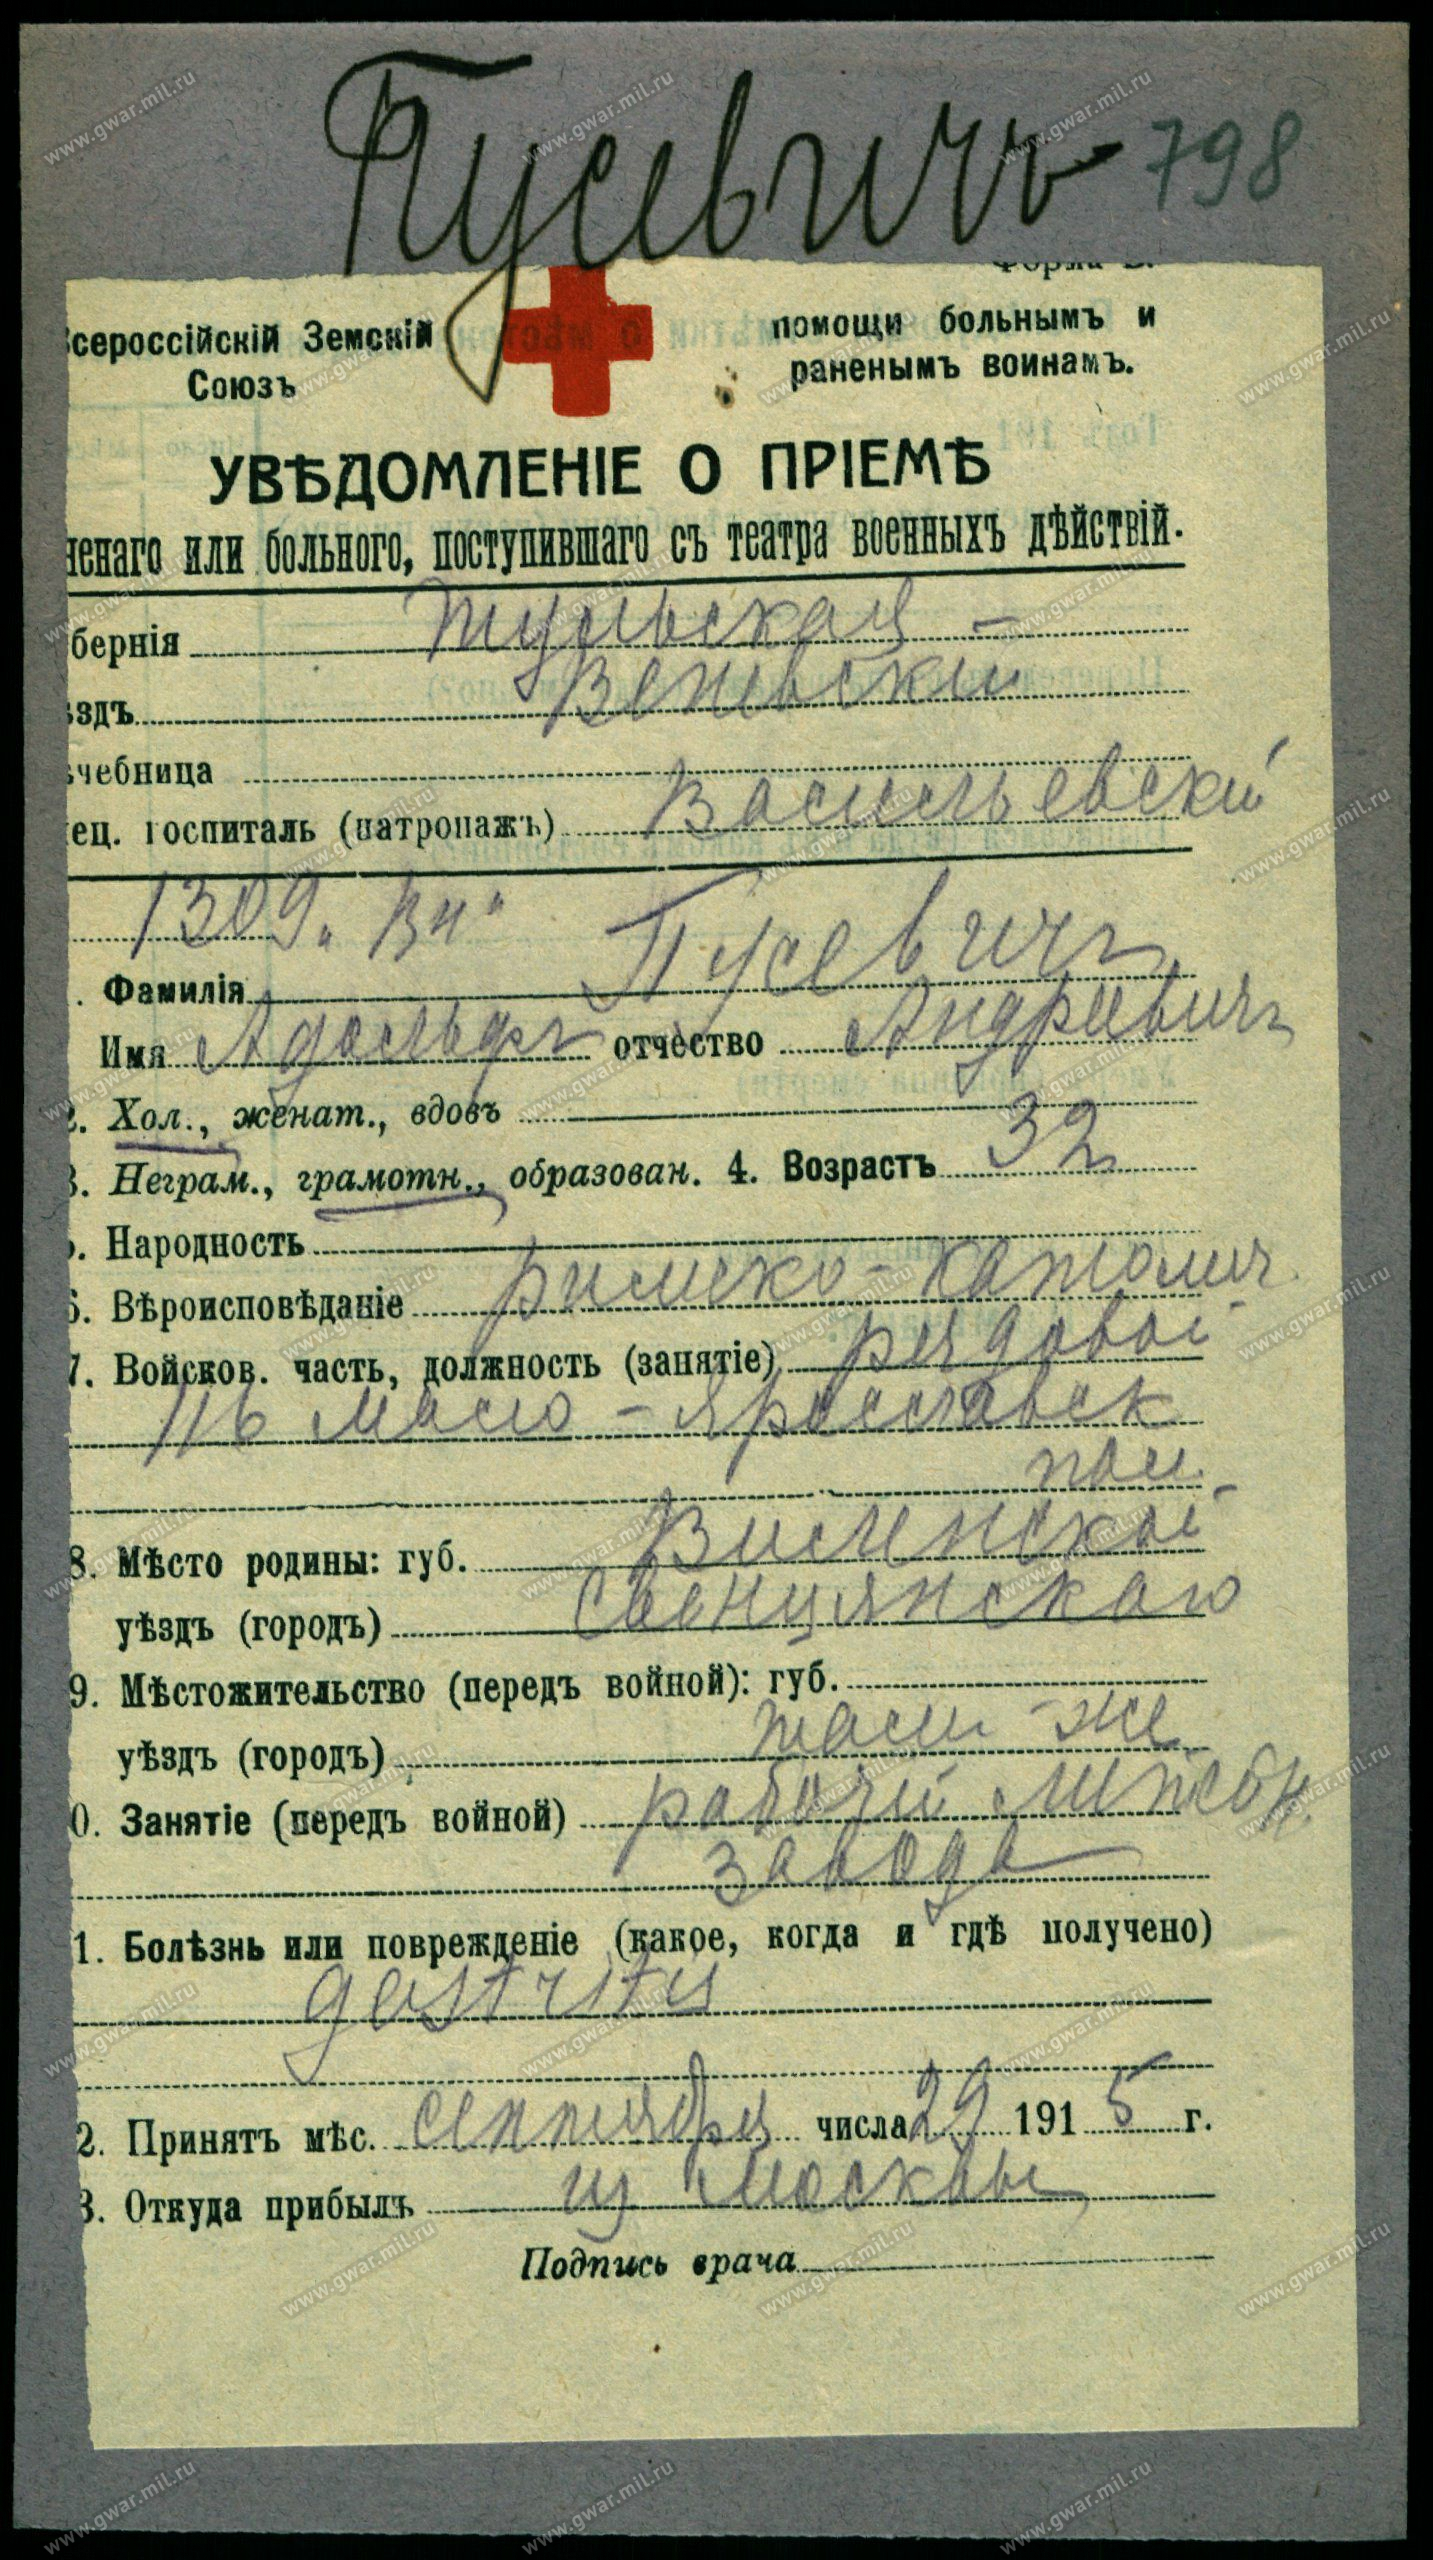 Пусевичъ 798
Форма
сероссійскій Земскій помощи больнымъ и
Союзъ раненымъ воинамъ.
УВѢДОМЛЕНІЕ О ПРІЕМѢ
ненаго или больного, поступившаго съ театра военныхъ дѣйствій.
бернія Тульская -
ѣздъ Веневский
ечебница
ец. госпиталь (патронажъ) Васильевский
1309
Фамилія Пусевичъ
Имя Адольфъ отчество Андреевичъ
2. Хол., женат., вдовъ
3. Неграм., грамотн., образован. 4. Возрастъ 32
Народность
6. Вѣроисповѣданіе римско-католич.
7. Войсков. часть, должность (занятіе) рядовой
116 Мало-Ярославск
пол.
8. Мѣсто родины: губ. Виленской
уѣздъ (городъ) Свенцянскаго
9. Мѣстожительство (передъ войной): губ.
уѣздъ (городъ) там-же
0. Занятіе (передъ войной) рабочий
завода
1. Болѣзнь или поврежденіе (какое, когда и гдѣ получено)
gastritis
2. Принятъ мѣс. сентября числа 29 1915 г.
3. Откуда прибылъ из Москвы
Подпись врача